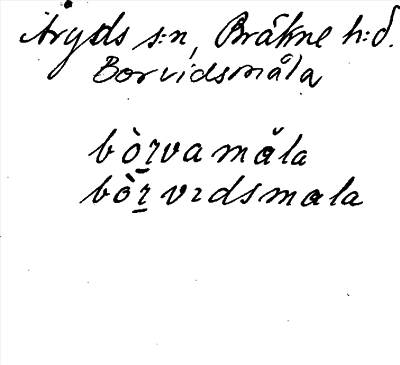 Åryds s:n, Bräkne h:d.
Borvidsmåla
bò̱rvamåla
bò̱rvıdsmala